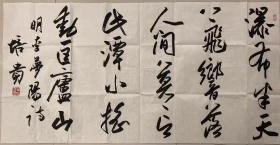 瀑布半天
上飛響落
人間莫言
此潭小摇
動匡廬山
明李夢陽诗
培貴